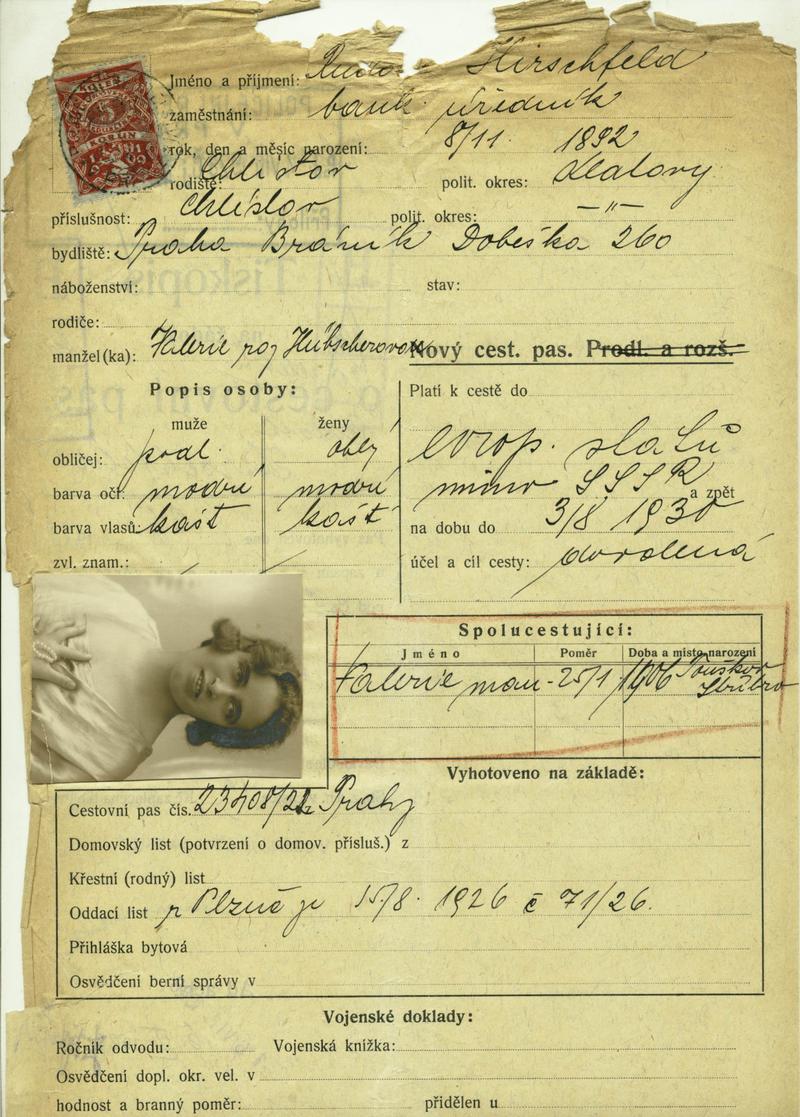 Jméno a příjmení: Hirschfeld
zaměstnání: bank. úředník
rok, den a měsíc narození: 8/11. 1892
rodiště: Chlistov polit. okres: Klatovy
příslušnost: Chlistov polit. okres: —"—
bydliště: Praha Bráník Dobeška 260
náboženství: stav:
rodiče:
manžel(ka): Valerie roz Hübscherova
Nový cest. pas. Prodl. a rozš.
Popis osoby:
muže ženy
obličej: podl. oblý
barva očí: modré modré
barva vlasů: kašt kašt
zvl. znam.:
Platí k cestě do
evrop. států
mimo SSSR a zpět
na dobu do 3/8 1930
účel a cíl cesty: dovolená
5
KORUN
Spolucestující:
Jméno Poměr Doba a místo narození
Valerie man - 25/1 1906 Touškov
Stříbro
Vyhotoveno na základě:
Cestovní pas čís. Prahy
Domovský list (potvrzení o domov. přísluš.) z
Křestní (rodný) list
Oddací list z Plzně je 15/8. 1926 č 71/26.
Přihláška bytová
Osvědčení berní správy v
Vojenské doklady:
Ročník odvodu: Vojenská knížka:
Osvědčení dopl. okr. vel. v
hodnost a branný poměr: přidělen u